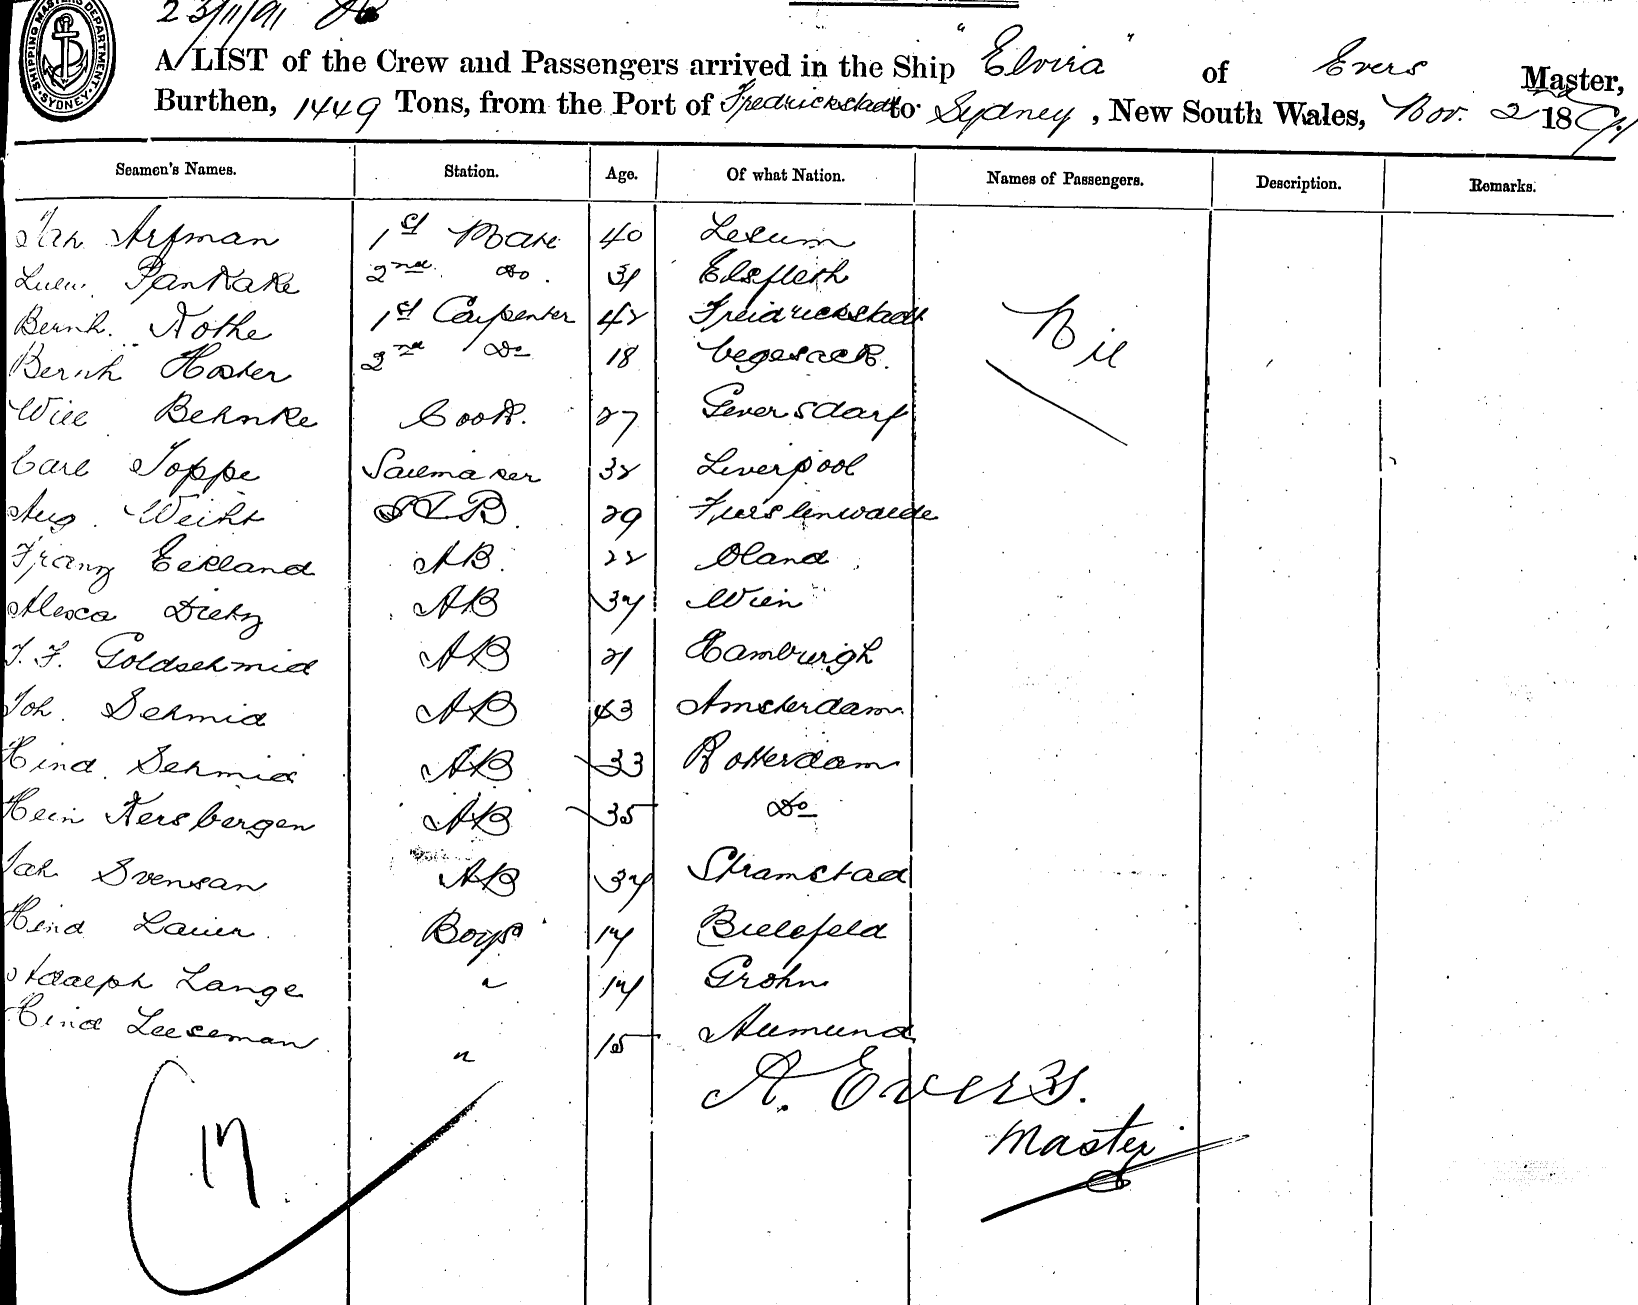 23/11/91
SHIPPING MASTERS DEPARTMENT. SYDNEY.
A LIST of the Crew and Passengers arrived in the Ship "Elvira" of Evers Master,
Burthen, 1449 Tons, from the Port of Fredrickstadt to Sydney, New South Wales, Nov. 2 1891
Seamen's Names. Station. Age. Of what Nation. Names of Passengers. Description. Remarks.
Arfman 1st Mate 40 Lesum
Pankake 2nd Do. 31 Elsfleth
Bernh. Nothe 1st Carpenter 42 Freidrickstadt
Nil
Bernh Hoster 2nd Do 18 Vegesack.
Will Behnke Cook. 27 Geversdarf
Carl Toppe Sailmaker 32 Liverpool
Aug. Weiht AB. 29 Fuerslenwalde
Franz Eekland AB. 22 Oland
Alexa Dietz AB 34 Wien
J. F. Goldschmid AB 21 Hamburgh
Joh. Schmid AB 43 Amsterdam
Hind. Schmid AB 33 Rotterdam
Hein Kersbergen AB 35 Do
Jah Svensan AB 34 Stramstad
Hind Lauer Boys 17 Bielefeld
Adalph Lange " 17 Grohn
Hind Leeseman " 15 Aumund
A. Evers.
Master
17.